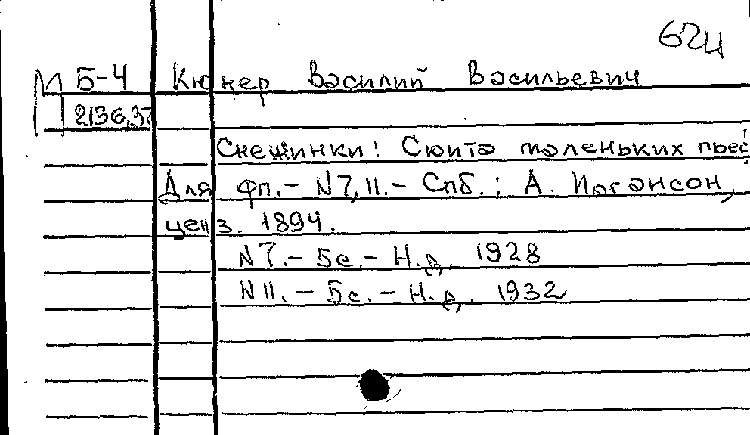 624
М Б-4 Кюнер Василий Васильевич
2136,37
Снежинки! Сюита маленьких пьес
Для фп.- N7,11.- Спб.: А. Иогансон,
ценз. 1894.
N7.- 5с.- Н.д. 1928
N11.- 5с.- Н.д. 1932